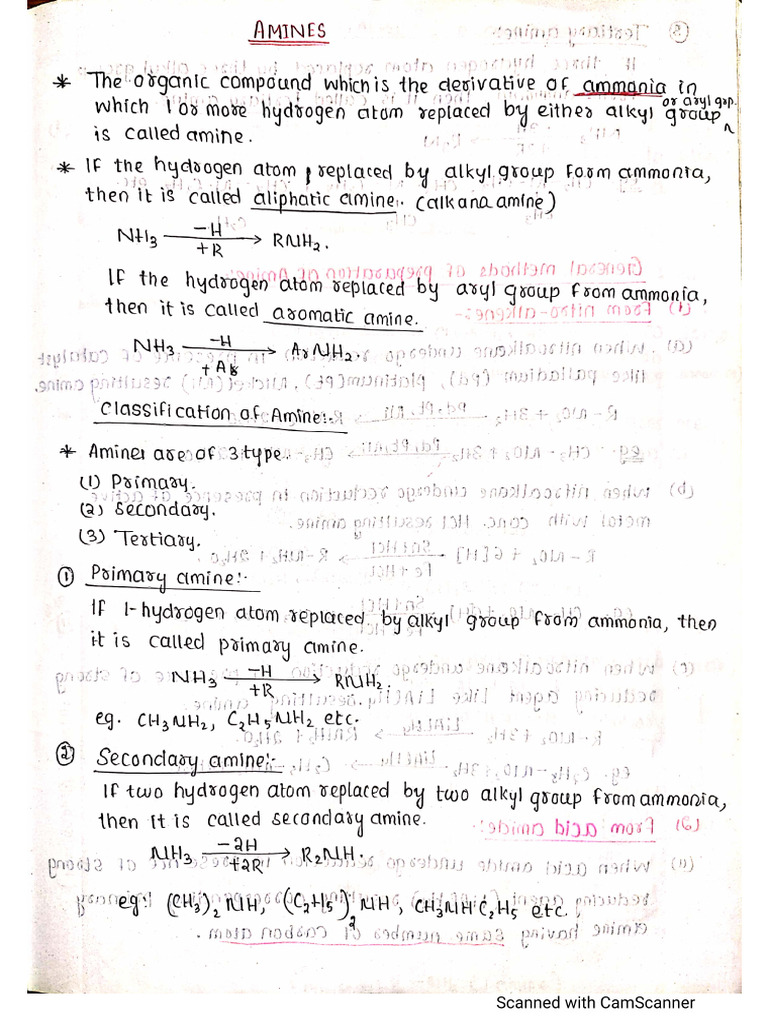 AMINES
* The organic compound which is the derivative of ammonia in
which 1 or more hydrogen atom replaced by either alkyl group or aryl grp.
is called amine.
* If the hydrogen atom replaced by alkyl group form ammonia,
then it is called aliphatic amine:. (alkana amine)
NH3 —-H/+R→ RNH2.
If the hydrogen atom replaced by aryl group from ammonia,
then it is called aromatic amine.
NH3 —-H/+Ar→ ArNH2.
Classification of Amine:-
* Amines are of 3 type.
(1) Primary.
(2) Secondary.
(3) Tertiary.
① Primary amine:-
If 1-hydrogen atom replaced by alkyl group from ammonia, then
it is called primary amine.
NH3 —-H/+R→ RNH2.
eg. CH3NH2, C2H5NH2 etc.
② Secondary amine:-
If two hydrogen atom replaced by two alkyl group from ammonia,
then it is called secondary amine.
NH3 —-2H/+2R→ R2NH.
eg:- (CH3)2NH, (C2H5)2NH, CH3NHC2H5 etc.
Scanned with CamScanner